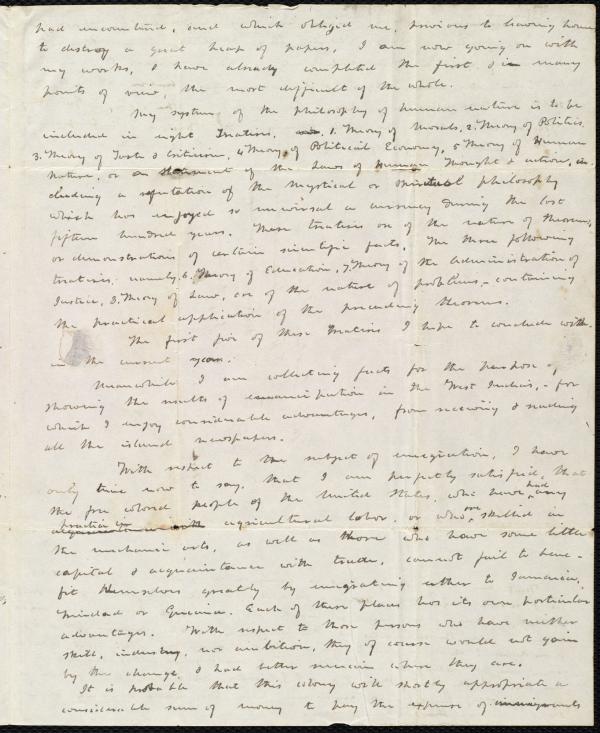 had encountered, and which obliged me, previous to leaving home
to destroy a great heap of papers, I am now going on with
my works, & have already completed the first & in many
points of view, the most difficult of the whole.
My system of the philosophy of human nature is to be
included in eight Treatises, 1. Theory of Morals, 2. Theory of Politics
3. Theory of Taste & Criticism, 4 Theory of Political Economy, 5 Theory of Human
Nature, or a Statement of the Laws of Human Thought & action, in-
cluding a refutation of the mystical or spiritual philosophy
which has enjoyed so universal a currency during the last
fifteen hundred years. These treatises are of the nature of theorems,
or demonstrations of certain scientific facts. The three following
treatises, namely, 6. Theory of Education, 7. Theory of the Administration of
Justice, 8. Theory of Law, are of the nature of problems, - containing
the practical application of the preceding theorems.
The first five of these Treatises I hope to conclude with-
in the current year.
Meanwhile I am collecting facts for the purpose of
showing the results of emancipation in the West Indies, - for
which I enjoy considerable advantages, from receiving & reading
all the island newspapers.
With respect to the subject of emigration, I have
only time now to say, that I am perfectly satisfied, that
the free colored people of the United States, who have had any
practice in agricultural labor, or who are skilled in
the mechanic arts, as well as those who have some little
capital & acquaintance with trade, cannot fail to bene-
fit themselves greatly by emigrating either to Jamaica,
Trinidad or Guiana. Each of these places has its own particular
advantages. With respect to those persons who have neither
skill, industry, nor ambition, they of course would not gain
by the change, & had better remain where they are.
It is probable that this colony will shortly appropriate a
considerable sum of money to pay the expense of